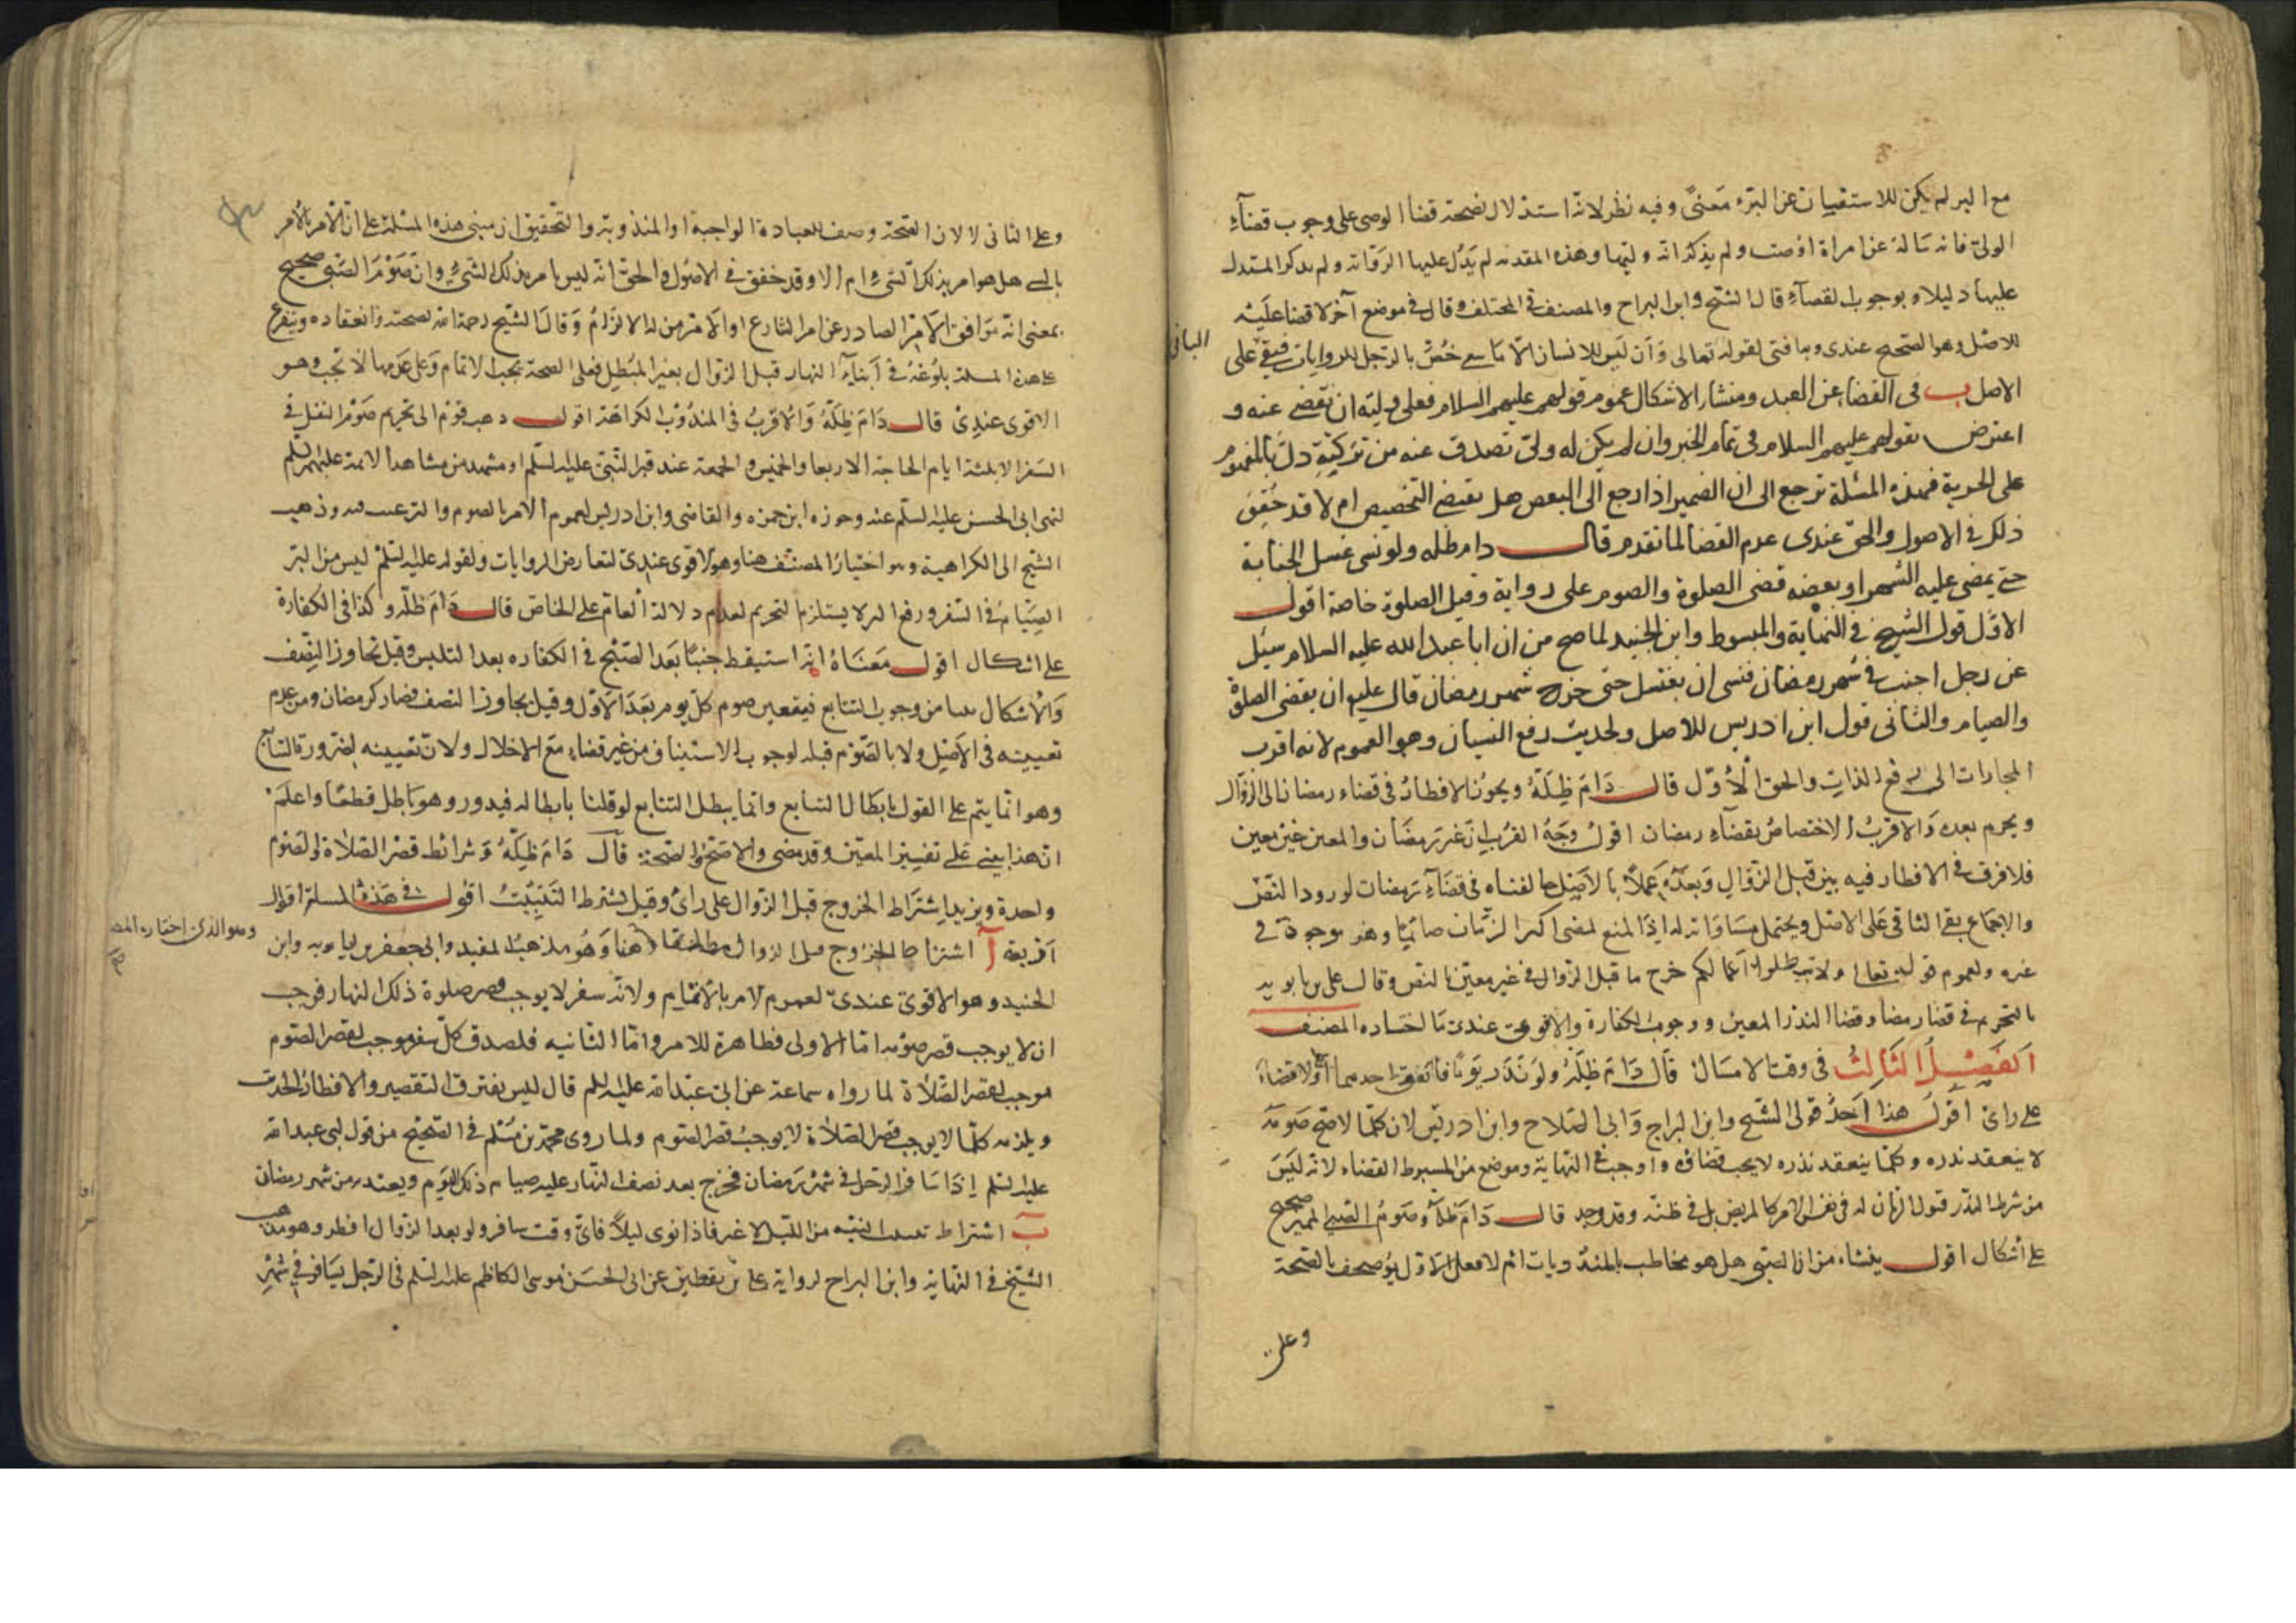 مع البر لم يكن للاستفسار عن البرء معنى وفيه نظر لانه استدلال بصحة قضاء الوصى على وجوب قضاء
الولى فانه سأله عن امراة اوصت ولم يذكر انه وليها وهذه المقدمة لم يدل عليها الرواية ولم يذكر المستدل
عليها دليلا وبوجوب القضاء قال الشيخ وابن البراج والمصنف فى المختلف وقال فى موضع آخر لا قضاء عليه
للاصل وهو الصحيح عندى وبه افتى لقوله تعالى وأن ليس للانسان الا ما سعى خص بالرجل للروايات فبقى على
الباقى
الاصل ب فى القضاء عن العبد ومنشأ الاشكال عموم قولهم عليهم السلام فعلى وليه ان يقضى عنه و
اعترض بقولهم عليهم السلام فى تمام الخبر وان لم يكن له ولى تصدق عنه من تركته دل بالمفهوم
على الحرية فهذه المسئلة ترجع الى ان الضمير اذا رجع الى البعض هل يقتضى التخصيص ام لا قد حقق
ذلك فى الاصول والحق عندى عدم القضا لما تقدم قال دام ظله ولو نسى غسل الجنابة
حتى يمضى عليه الشهر او بعضه قضى الصلوة والصوم على رواية وقيل الصلوة خاصة اقول
الاول قول الشيخ فى النهاية والمبسوط وابن الجنيد لما صح من ان ابا عبد الله عليه السلام سئل
عن رجل اجنب فى شهر رمضان فنسى ان يغتسل حتى خرج شهر رمضان قال عليه ان يقضى الصلوة
والصيام والثانى قول ابن ادريس للاصل ولحديث رفع النسيان وهو العموم لانه اقرب
المجازات الى رفع الذات والحق الاول قال دام ظله ويجوز الافطار فى قضاء رمضان الى الزوال
ويحرم بعده والاقرب الاختصاص بقضاء رمضان اقول وجه القرب ان غير رمضان والمعين غير معين
فلا فرق فى الافطار فيه بين قبل الزوال وبعده عملا بالاصل خالفناه فى قضاء رمضان لورود النص
والاجماع بقى الثانى على الاصل ويحتمل مساواته له اذ المنع لمضى اكثر الزمان صائما وهو موجود فى
غيره ولعموم قوله تعالى ولا تبطلوا اعمالكم خرج ما قبل الزوال فى غير معين بالنص وقال على بن بابويه
بالتحريم فى قضاء رمضان وقضاء النذر المعين ووجوب الكفارة والاقوى عندى ما اختاره المصنف
الفصل الثالث فى وقت الامساك قال دام ظله ولو نذر يوما فاتفق احدهما افطر ولا قضاء
على راى اقول هذا احد قولى الشيخ وابن البراج وابى الصلاح وابن ادريس لان كلما لا يصح صومه
لا ينعقد نذره وكلما لا ينعقد نذره لا يجب قضاؤه واوجب فى النهاية وموضع من المبسوط القضاء لانه ليس
من شرط النذر قبول الزمان له فى نفس الامر كالمريض بل فى ظنه وقد وجد قال دام ظله وصوم الصبى المميز صحيح
على اشكال اقول ينشأ من ان الصبى هل هو مخاطب بالمندوبات ام لا فعلى الاول يوصف بالصحة
وعلى
وعلى الثانى لا لان الصحة وصف للعبادة الواجبة او المندوبة والتحقيق ان مبنى هذه المسئلة على ان الامر بالامر
بالشئ هل هو امر بذلك الشئ ام لا وقد حقق فى الاصول والحق انه ليس بامر بذلك الشئ وان صوم الصبى صحيح
بمعنى انه موافق الامر الصادر عن امر الشارع او الامر من له الالزام وقال الشيخ رحمه الله بصحته وانعقاده ويتفرع
على هذه المسئلة بلوغه فى اثناء النهار قبل الزوال بغير المبطل فعلى الصحة يجب الاتمام وعلى عدمها لا يجب وهو
الاقوى عندى قال دام ظله والاقرب فى المندوب الكراهة اقول ذهب قوم الى تحريم صوم النفل فى
السفر الا ثلثة ايام الحاجة الاربعا والخميس والجمعة عند قبر النبى عليه السلم او مشهد من مشاهد الائمة عليهم السلم
لنهى ابى الحسن عليه السلم عنه وجوزه ابن حمزه والقاضى وابن ادريس لعموم الامر بالصوم والترغيب فيه وذهب
الشيخ الى الكراهية وهو اختيار المصنف هنا وهو الاقوى عندى لتعارض الروايات ولقوله عليه السلم ليس من البر
الصيام فى السفر ورفع البر لا يستلزم التحريم لعدم دلالة العام على الخاص قال دام ظله وكذا فى الكفارة
على اشكال اقول معناه انه استيقظ جنبا بعد الصبح فى الكفاره بعد التلبس وقبل تجاوز النصف
والاشكال نشا من وجوب التتابع فيتعين صوم كل يوم بعد الاول وقيل يجاوز النصف فصار كرمضان ومن عدم
تعيينه فى الاصل ولا بالصوم قبله لوجوب الاستيناف من غير قضاء مع الاخلال ولان تعيينه لضرورة التتابع
وهو انما يتم على القول بابطال التتابع وانما يبطل التتابع لو قلنا بابطاله فيدور وهو باطل قطعا واعلم
ان هذا يبنى على تفسير المعين وقد مضى والاصح الصحة قال دام ظله وشرائط قصر الصلاة والصوم
واحدة ويزيد اشتراط الخروج قبل الزوال على راى وقيل يشترط التبييت اقول فى هذه المسئلة اقوال
اربعة آ اشتراط الخروج قبل الزوال مطلقا هنا وهو مذهب المفيد وابى جعفر بن بابويه وابن
وهو الذى اختاره المص
الجنيد وهو الاقوى عندى لعموم الامر بالاتمام ولانه سفر لا يوجب قصر صلوة ذلك النهار فوجب
ان لا يوجب قصر صومه اما الاولى فظاهرة للامر واما الثانيه فلصدق كل سفر موجب لقصر الصوم
موجب لقصر الصلاة لما رواه سماعة عن ابى عبد الله عليه السلم قال ليس يفترق التقصير والافطار الحديث
ويلزمه كلما لا يوجب قصر الصلاة لا يوجب قصر الصوم ولما روى محمد بن مسلم فى الصحيح من قول ابى عبد الله
عليه السلم اذا سافر الرجل فى شهر رمضان فخرج بعد نصف النهار عليه صيام ذلك اليوم ويعتد به من شهر رمضان
ب اشتراط تبييت النيه من الليل لا غير فاذا نوى ليلا فاى وقت سافر ولو بعد الزوال افطر وهو مذهب
الشيخ فى النهاية وابن البراج لرواية على بن يقطين عن ابى الحسن موسى الكاظم عليه السلم فى الرجل يسافر فى شهر